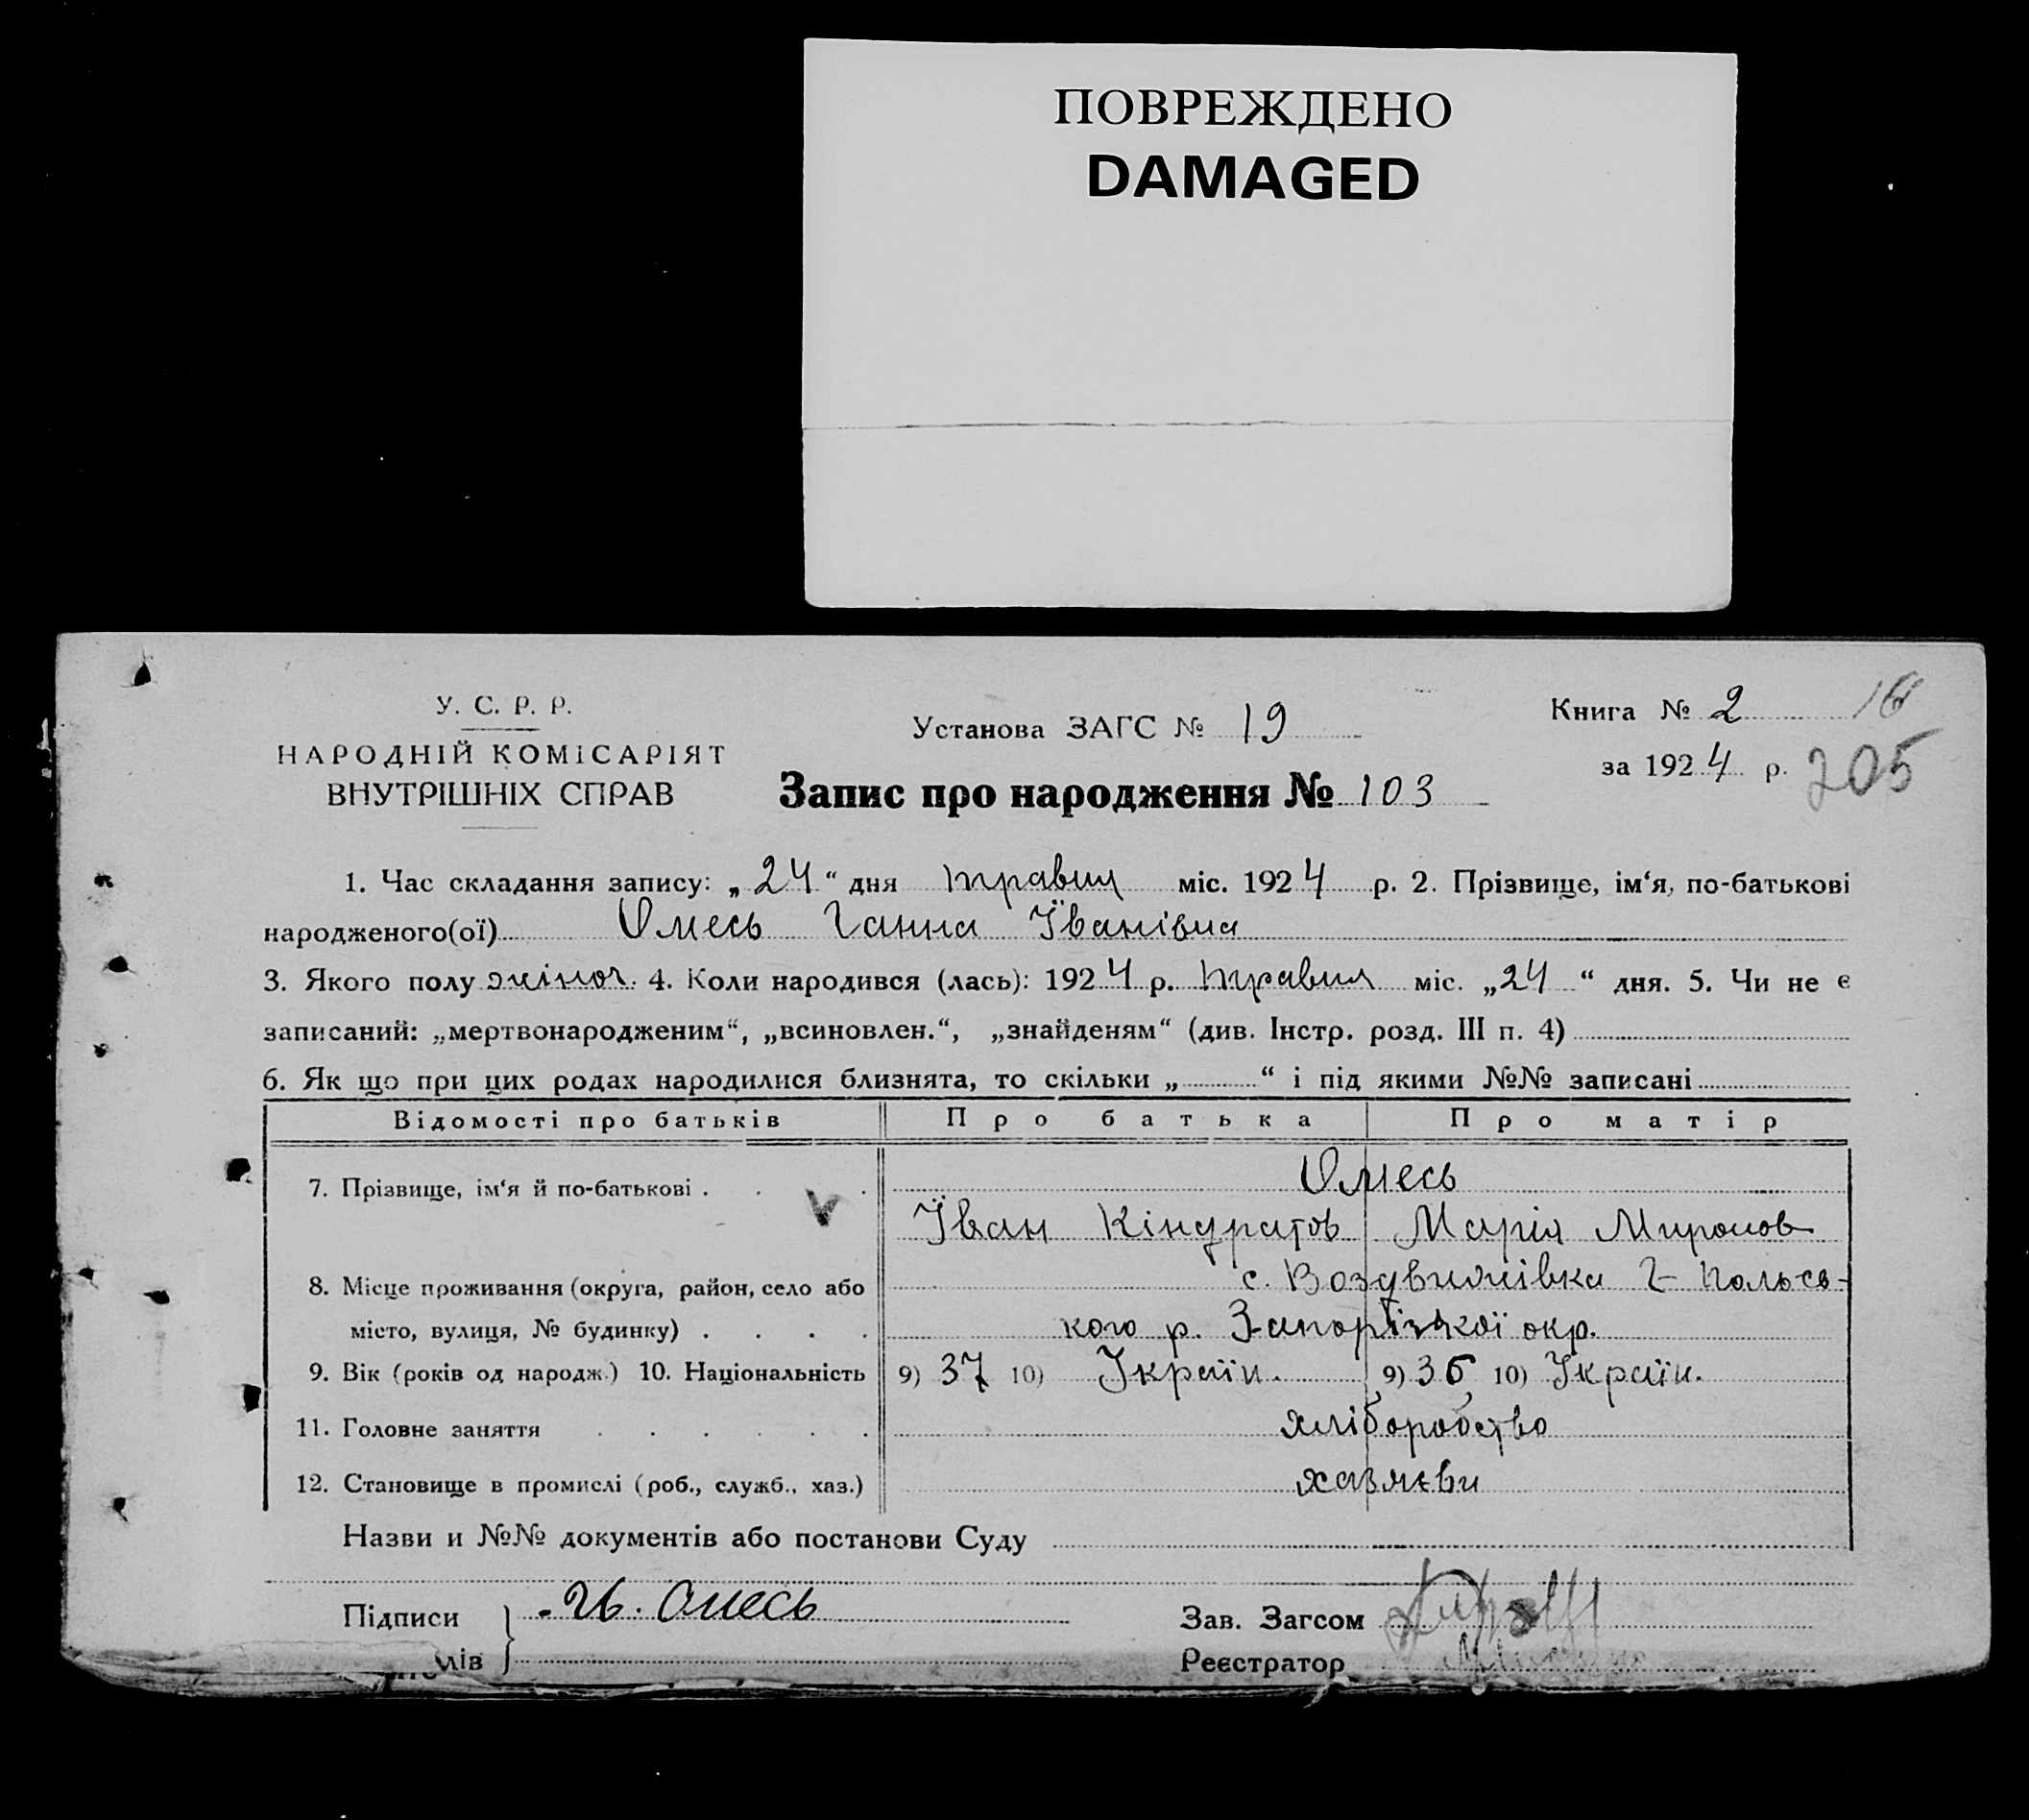 ПОВРЕЖДЕНО
DAMAGED
У. С. Р. Р.
НАРОДНІЙ КОМІСАРІЯТ
ВНУТРІШНІХ СПРАВ
Установа ЗАГС № 19
Запис про народження № 103
Книга № 2 16
за 1924 р. 205
1. Час складання запису: „24“ дня травня міс. 1924 р. 2. Прізвище, ім‘я, по-батькові
народженого(ої) Омесь Ганна Їванівна
3. Якого полу жіноч. 4. Коли народився (лась): 1924 р. травня міс. „24“ дня. 5. Чи не є
записаний: „мертвонародженим“, „всиновлен.“, „знайденям“ (див. Інстр. розд. III п. 4)
6. Як що при цих родах народилися близнята, то скільки „ “ і під якими №№ записані
Відомості про батьків Про батька Про матір
7. Прізвище, ім‘я й по-батькові . . . Омесь
Їван Кіндратов Марія Миронов
8. Місце проживання (округа, район, село або с. Воздвижівка Г-Польсь-
місто, вулиця, № будинку) . . . . кого р. Запорізької окр.
9. Вік (років од народж.) 10. Національність 9) 37 10) Україн. 9) 36 10) Україн.
11. Головне заняття . . . . . . хліборобство
12. Становище в промислі (роб., служб., хаз.) хазяєви
Назви и №№ документів або постанови Суду
Підписи Ив. Омесь Зав. Загсом
лів Реєстратор